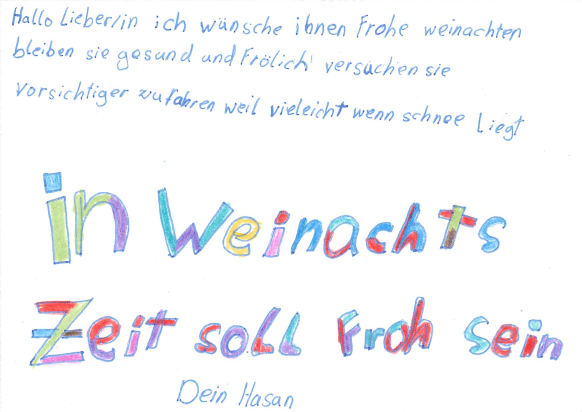 Hallo Lieber/in ich wünsche ihnen Frohe weinachten
bleiben sie gesund und Frölich versuchen sie
vorsichtiger zufahren weil vieleicht wenn schnee Liegt
in Weinachts
Zeit soll Froh sein
Dein Hasan